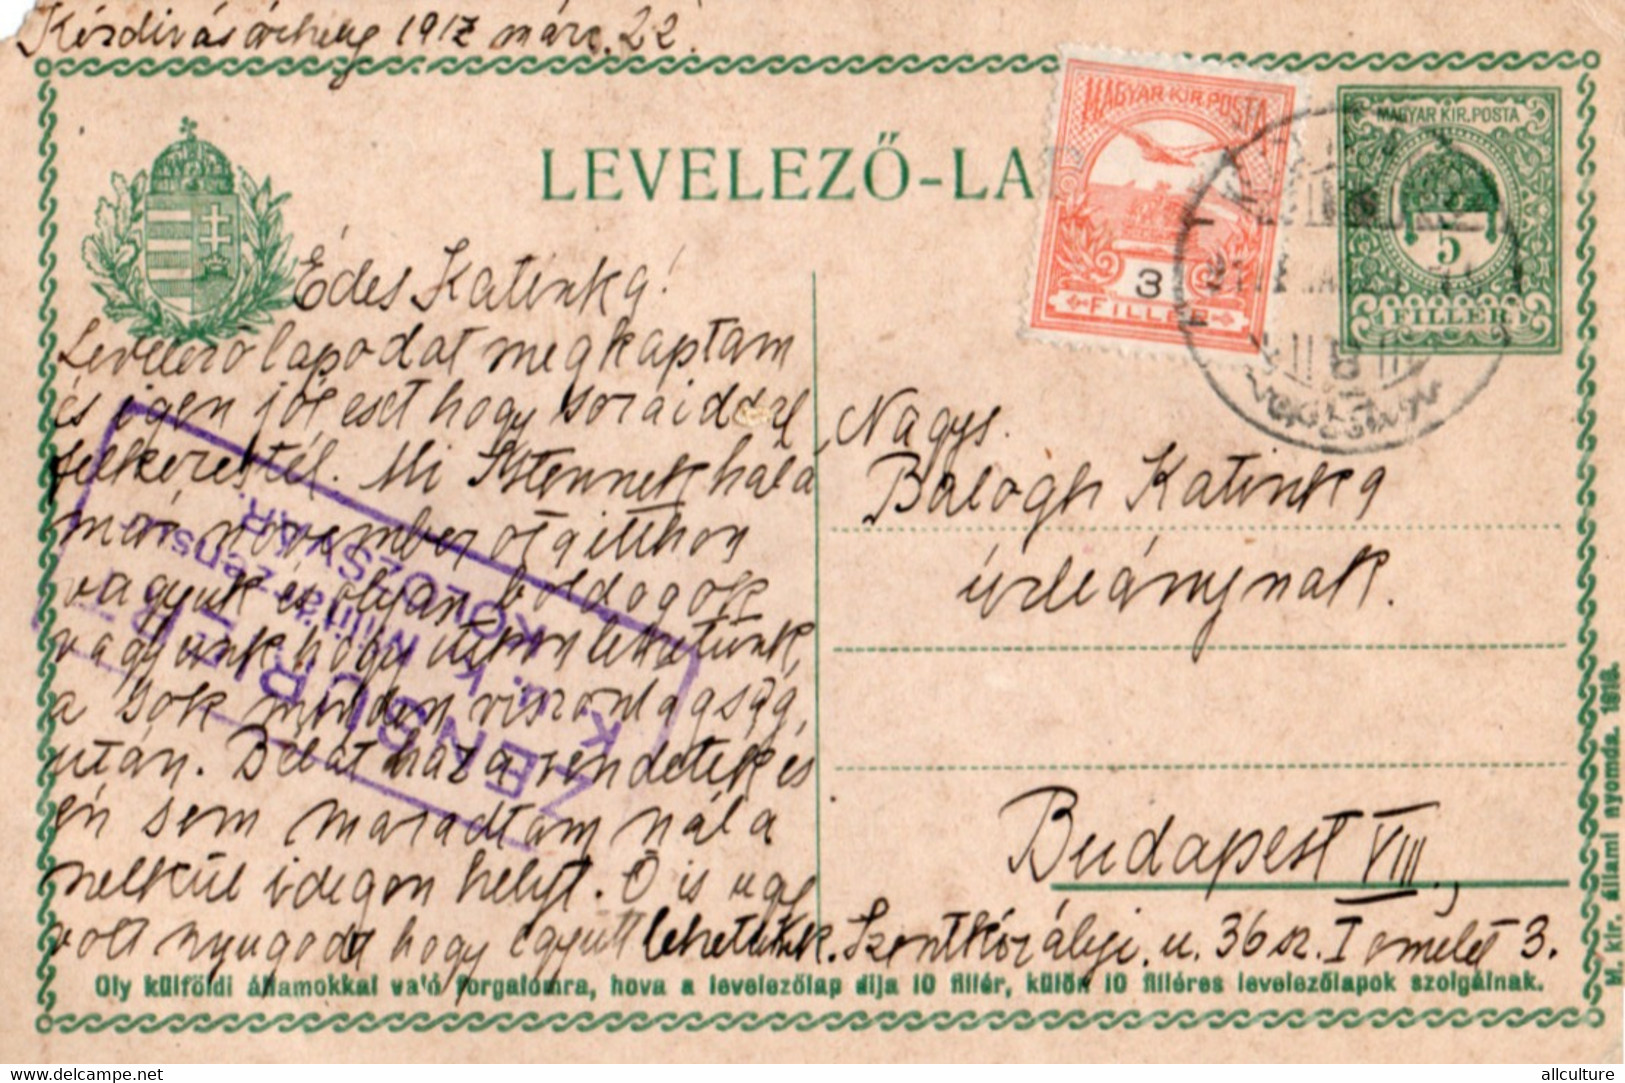 Kézdivásárhely 1917 márc. 22.
LEVELEZŐ-LA
MAGYAR KIR. POSTA
3
FILLÉR
MAGYAR KIR. POSTA
5
FILLÉR
B
Édes Katinka!
Levelező lapodat megkaptam
és igen jól eset hogy soraiddal
felkerestél. Mi Istennek hála
már november óta itthon
vagyunk és olyan boldogok
vagyunk hogy itthon lehetünk,
a sok minden viszontagság
után. Bélát haza rendelték és
én sem maradtam nála
nélkül idegen helyt. Ő is ugy
volt nyugodt hogy együtt lehetünk.
ZENSURIERT
K. u. K. Militärzensur
KOLOZSVÁR.
Nagys.
Balogh Katinka
úrleánynak.
Budapest VIII.,
Szentkirályi u. 36 sz. I emelet 3.
Oly külföldi államokkal való forgalomra, hova a levelezőlap díja 10 fillér, külön 10 filléres levelezőlapok szolgálnak.
M. kir. állami nyomda. 1916.
Delcampe.net
allculture